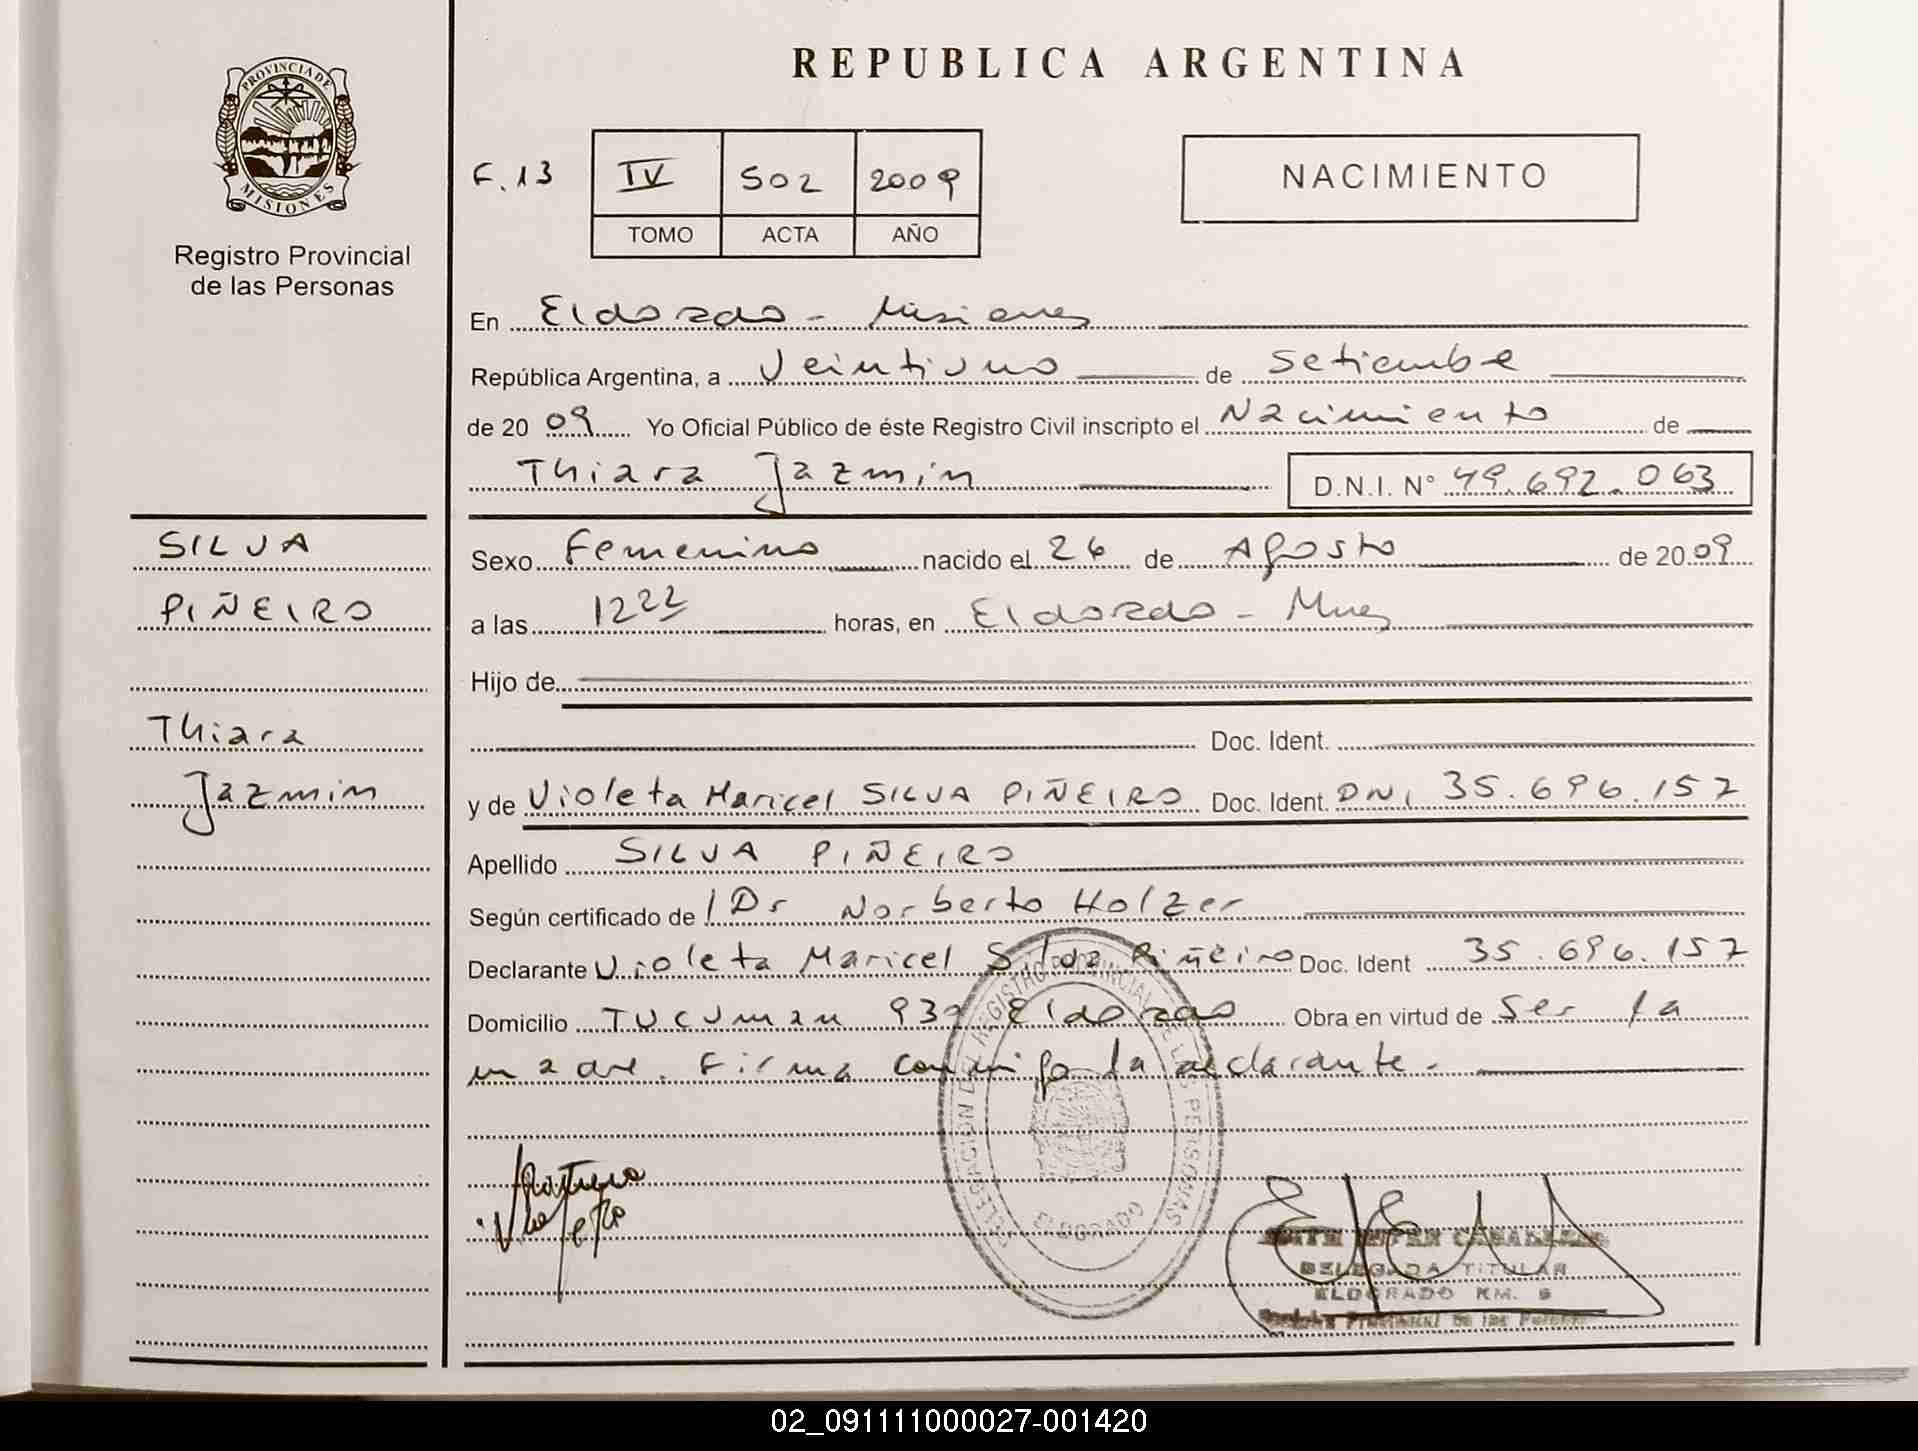 REPUBLICA ARGENTINA
PROVINCIA DE
MISIONES
Registro Provincial
de las Personas
F. 13
IV 502 2009
TOMO ACTA AÑO
NACIMIENTO
En Eldorado - Misiones
República Argentina, a Veintiuno de Setiembre
de 20 09 Yo Oficial Público de éste Registro Civil inscripto el Nacimiento de
Thiara Jazmin D.N.I. N° 49.692.063
SILVA
PIÑEIRO
Thiara
Jazmin
Sexo Femenino nacido el 26 de Agosto de 2009
a las 1222 horas, en Eldorado - Mnes
Hijo de
Doc. Ident.
y de Violeta Maricel SILVA PIÑEIRO Doc. Ident. DNI 35.696.157
Apellido SILVA PIÑEIRO
Según certificado de Dr Norberto Holzer
Declarante Violeta Maricel Silva Piñeiro Doc. Ident 35.696.157
Domicilio Tucuman Eldorado Obra en virtud de Ser la
madre. Firma conmigo la declarante.-
DELEGACION DEL REGISTRO PROVINCIAL DE LAS PERSONAS
ELDORADO
DELEGADA TITULAR
ELDORADO KM. 9
02_091111000027-001420